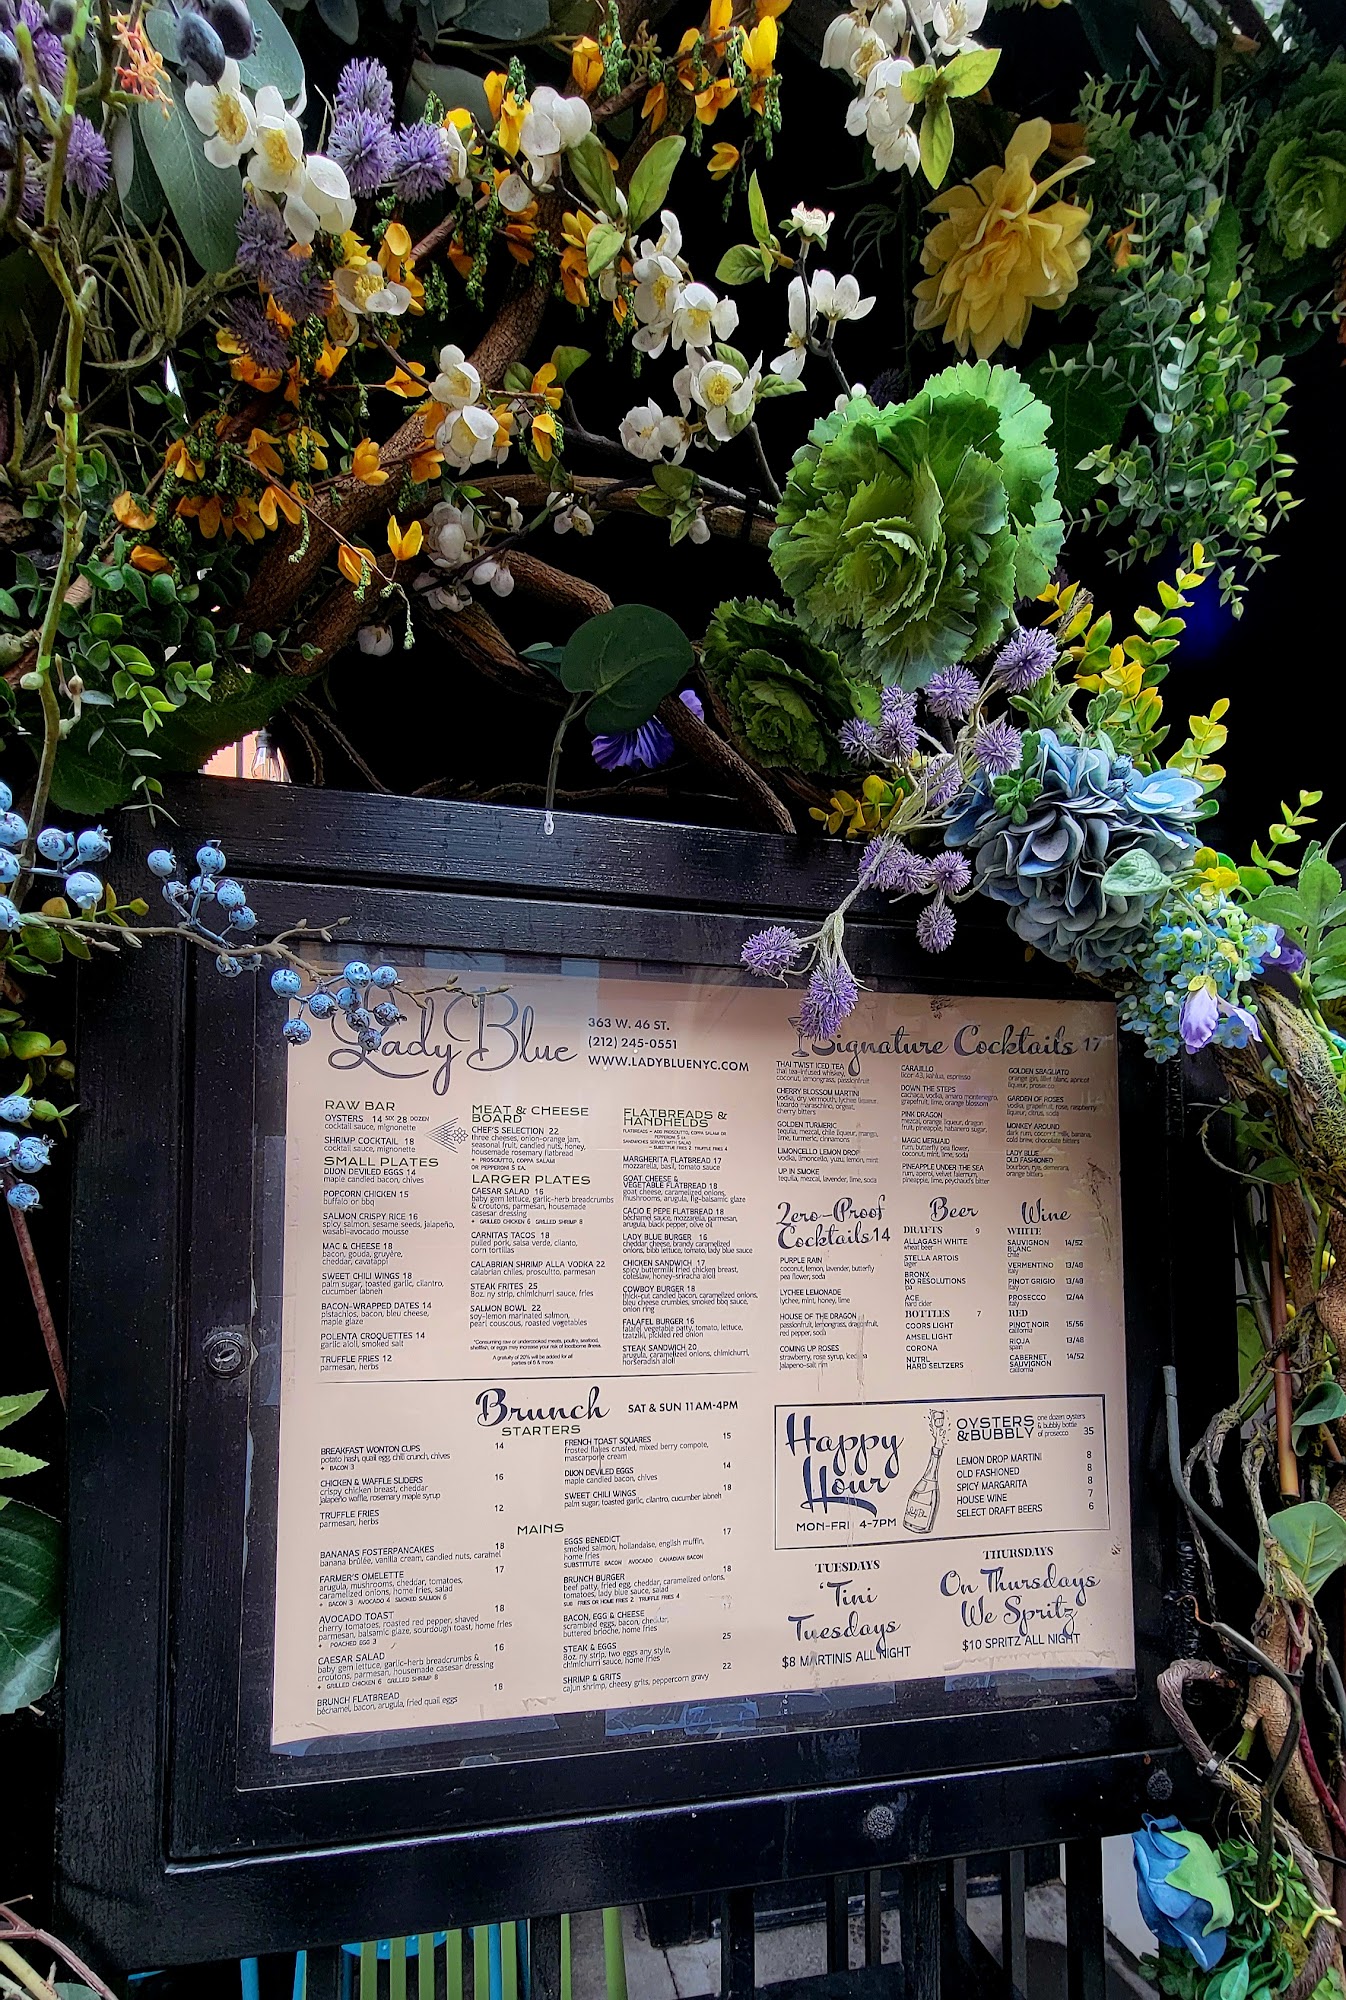 Lady Blue
363 W. 46 ST.
(212) 245-0551
WWW.LADYBLUENYC.COM
RAW BAR
OYSTERS 14 SIX 28 DOZEN
cocktail sauce, mignonette
SHRIMP COCKTAIL 18
cocktail sauce, mignonette
SMALL PLATES
DIJON DEVILED EGGS 14
maple candied bacon, chives
POPCORN CHICKEN 15
buffalo or bbq
SALMON CRISPY RICE 16
spicy salmon, sesame seeds, jalapeño,
wasabi-avocado mousse
MAC & CHEESE 18
bacon, gouda, gruyère,
cheddar, cavatappi
SWEET CHILI WINGS 18
palm sugar, toasted garlic, cilantro,
cucumber labneh
BACON-WRAPPED DATES 14
pistachios, bacon, bleu cheese,
maple glaze
POLENTA CROQUETTES 14
garlic aioli, smoked salt
TRUFFLE FRIES 12
parmesan, herbs
MEAT & CHEESE
BOARD
CHEF'S SELECTION 22
three cheeses, onion-orange jam,
seasonal fruit, candied nuts, honey,
housemade rosemary flatbread
+ PROSCIUTTO, COPPA SALAMI
OR PEPPERONI 5 EA.
LARGER PLATES
CAESAR SALAD 16
baby gem lettuce, garlic-herb breadcrumbs
& croutons, parmesan, housemade
caesar dressing
+ GRILLED CHICKEN 6 GRILLED SHRIMP 8
CARNITAS TACOS 18
pulled pork, salsa verde, cilanto,
corn tortillas
CALABRIAN SHRIMP ALLA VODKA 22
calabrian chilies, proscuitto, parmesan
STEAK FRITES 25
8oz. ny strip, chimichurri sauce, fries
SALMON BOWL 22
soy-lemon marinated salmon,
pearl couscous, roasted vegetables
*Consuming raw or undercooked meats, poultry, seafood,
shellfish, or eggs may increase your risk of foodborne illness.
A gratuity of 20% will be added for all
parties of 6 & more.
FLATBREADS &
HANDHELDS
FLATBREADS - ADD PROSCIUTTO, COPPA SALAMI OR
PEPPERONI 5 EA.
SANDWICHES SERVED WITH SALAD
- SUBSTITUTE FRIES 2 TRUFFLE FRIES 4
MARGHERITA FLATBREAD 17
mozzarella, basil, tomato sauce
GOAT CHEESE &
VEGETABLE FLATBREAD 18
goat cheese, caramelized onions,
mushrooms, arugula, fig-balsamic glaze
CACIO E PEPE FLATBREAD 18
béchamel sauce, mozzarella, parmesan,
arugula, black pepper, olive oil
LADY BLUE BURGER 16
cheddar cheese, brandy caramelized
onions, bibb lettuce, tomato, lady blue sauce
CHICKEN SANDWICH 17
spicy buttermilk fried chicken breast,
coleslaw, honey-sriracha aioli
COWBOY BURGER 18
thick-cut candied bacon, caramelized onions,
bleu cheese crumbles, smoked bbq sauce,
onion ring
FALAFEL BURGER 16
falafel vegetable patty, tomato, lettuce,
tzatziki, pickled red onion
STEAK SANDWICH 20
arugula, caramelized onions, chimichurri,
horseradish aioli
Signature Cocktails 17
THAI TWIST ICED TEA
thai tea-infused whiskey,
coconut, lemongrass, passionfruit
CHERRY BLOSSOM MARTINI
vodka, dry vermouth, lychee liqueur,
luxardo maraschino, orgeat,
cherry bitters
GOLDEN TURMERIC
tequila, mezcal, chile liqueur, mango,
lime, turmeric, cinnamon
LIMONCELLO LEMON DROP
vodka, limoncello, yuzu, lemon, mint
UP IN SMOKE
tequila, mezcal, lavender, lime, soda
CARAJILLO
licor 43, kahlua, espresso
DOWN THE STEPS
cachaca, vodka, amaro montenegro,
grapefruit, lime, orange blossom
PINK DRAGON
mezcal, orange liqueur, dragon
fruit, pineapple, habanero sugar
MAGIC MERMAID
rum, butterfly pea flower,
coconut, mint, lime, soda
PINEAPPLE UNDER THE SEA
rum, aperol, velvet falernum,
pineapple, lime, peychaud's bitter
GOLDEN SBAGLIATO
orange gin, lillet blanc, apricot
liqueur, prosecco
GARDEN OF ROSES
vodka, grapefruit, rose, raspberry
liqueur, citrus, soda
MONKEY AROUND
dark rum, coconut milk, banana,
cold brew, chocolate bitters
LADY BLUE
OLD FASHIONED
bourbon, rye, demerara,
orange bitters
Zero-Proof
Cocktails 14
PURPLE RAIN
coconut, lemon, lavender, butterfly
pea flower, soda
LYCHEE LEMONADE
lychee, mint, honey, lime
HOUSE OF THE DRAGON
passionfruit, lemongrass, dragonfruit,
red pepper, soda
COMING UP ROSES
strawberry, rose syrup, iced tea
jalapeno-salt rim
Beer
DRAFTS 9
ALLAGASH WHITE
wheat beer
STELLA ARTOIS
lager
BRONX
NO RESOLUTIONS
ipa
ACE
hard cider
BOTTLES 7
COORS LIGHT
AMSEL LIGHT
CORONA
NUTRL
HARD SELTZERS
Wine
WHITE
SAUVIGNON 14/52
BLANC
chile
VERMENTINO 13/48
italy
PINOT GRIGIO 13/48
italy
PROSECCO 12/44
italy
RED
PINOT NOIR 15/56
california
RIOJA 13/48
spain
CABERNET 14/52
SAUVIGNON
california
Brunch SAT & SUN 11AM-4PM
STARTERS
BREAKFAST WONTON CUPS 14
potato hash, quail egg, chili crunch, chives
+ BACON 3
CHICKEN & WAFFLE SLIDERS 16
crispy chicken breast, cheddar
jalapeño waffle, rosemary maple syrup
TRUFFLE FRIES 12
parmesan, herbs
FRENCH TOAST SQUARES 15
frosted flakes crusted, mixed berry compote,
mascarpone cream
DIJON DEVILED EGGS 14
maple candied bacon, chives
SWEET CHILI WINGS 18
palm sugar, toasted garlic, cilantro, cucumber labneh
MAINS
BANANAS FOSTERPANCAKES 18
banana brûlée, vanilla cream, candied nuts, caramel
FARMER'S OMELETTE 17
arugula, mushrooms, cheddar, tomatoes,
caramelized onions, home fries, salad
+ BACON 3 AVOCADO 4 SMOKED SALMON 6
AVOCADO TOAST 18
cherry tomatoes, roasted red pepper, shaved
parmesan, balsamic glaze, sourdough toast, home fries
+ POACHED EGG 3
CAESAR SALAD 16
baby gem lettuce, garlic-herb breadcrumbs &
croutons, parmesan, housemade caesar dressing
+ GRILLED CHICKEN 6 GRILLED SHRIMP 8
BRUNCH FLATBREAD 18
béchamel, bacon, arugula, fried quail eggs
EGGS BENEDICT 17
smoked salmon, hollandaise, english muffin,
home fries
SUBSTITUTE BACON AVOCADO CANADIAN BACON
BRUNCH BURGER 18
beef patty, fried egg, cheddar, caramelized onions,
tomatoes, lady blue sauce, salad
SUB FRIES OR HOME FRIES 2 TRUFFLE FRIES 4
BACON, EGG & CHEESE
scrambled eggs, bacon, cheddar,
buttered brioche, home fries
STEAK & EGGS 25
8oz. ny strip, two eggs any style,
chimichurri sauce, home fries
SHRIMP & GRITS 22
cajun shrimp, cheesy grits, peppercorn gravy
Happy
Hour
MON-FRI 4-7PM
OYSTERS
&BUBBLY
one dozen oysters
& bubbly bottle
of prosecco
35
LEMON DROP MARTINI 8
OLD FASHIONED 8
SPICY MARGARITA 8
HOUSE WINE 7
SELECT DRAFT BEERS 6
TUESDAYS
'Tini
Tuesdays
$8 MARTINIS ALL NIGHT
THURSDAYS
On Thursdays
We Spritz
$10 SPRITZ ALL NIGHT